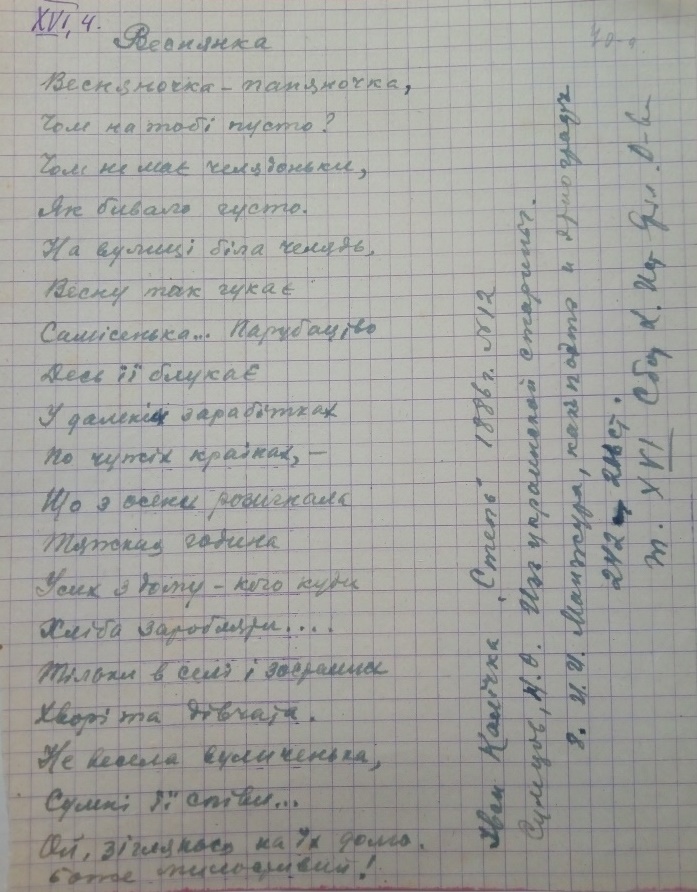 XVI, 4.
Веснянка
Весняночка-паняночка,
Чом на тобі пусто?
Чом не має челядоньки,
Як бивало густо.
На вулиці біла челядь,
Весну так гукає
Самісенька... Парубоцтво
Десь її блукає
У далеких зарабітках
По чужіх країнах, —
Що з осени розігнала
Тяжкая година
Усих з дому - кого куди
Хліба заробляти....
Тільки в селі і зосталися
Хворі та дівчата.
Не весела вуличенька,
Сумні її співи...
Ой, зіглянься на їх долю.
боже милосердий!
Иван Калічка "Степь" 1886г. №12
Сумцов, Н.Ф. Из украинской старины.
8. И.И. Манжура, как поэт и этнограф
242 ст.
т. XVI Сбор. Х. Ист. Фил. О-ва